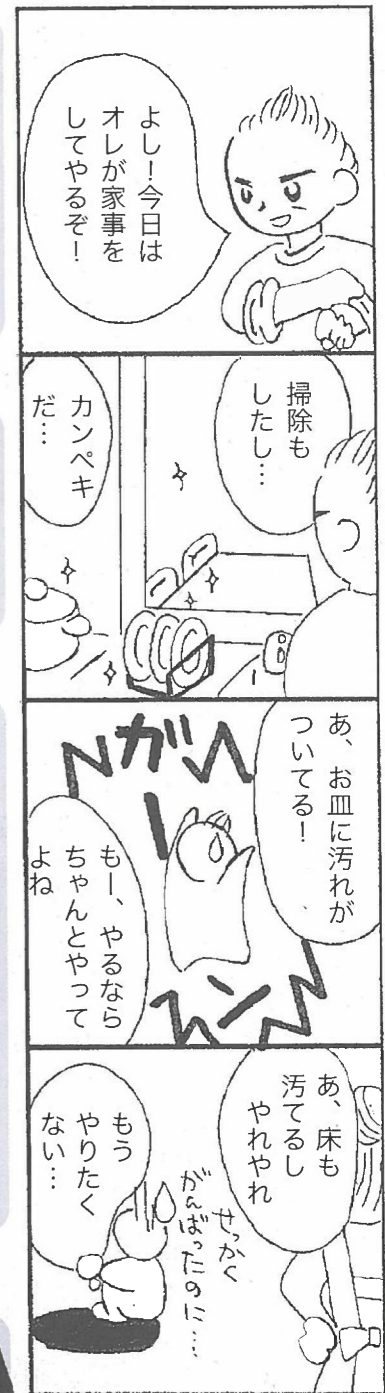 よし！今日は
オレが家事を
してやるぞ！
掃除も
したし…
カンペキ
だ…
あ、お皿に汚れが
ついてる！
ガーン
もー、やるなら
ちゃんとやって
よね
あ、床も
汚てるし
やれやれ
せっかく
がんばったのに……
もう
やりたく
ない…